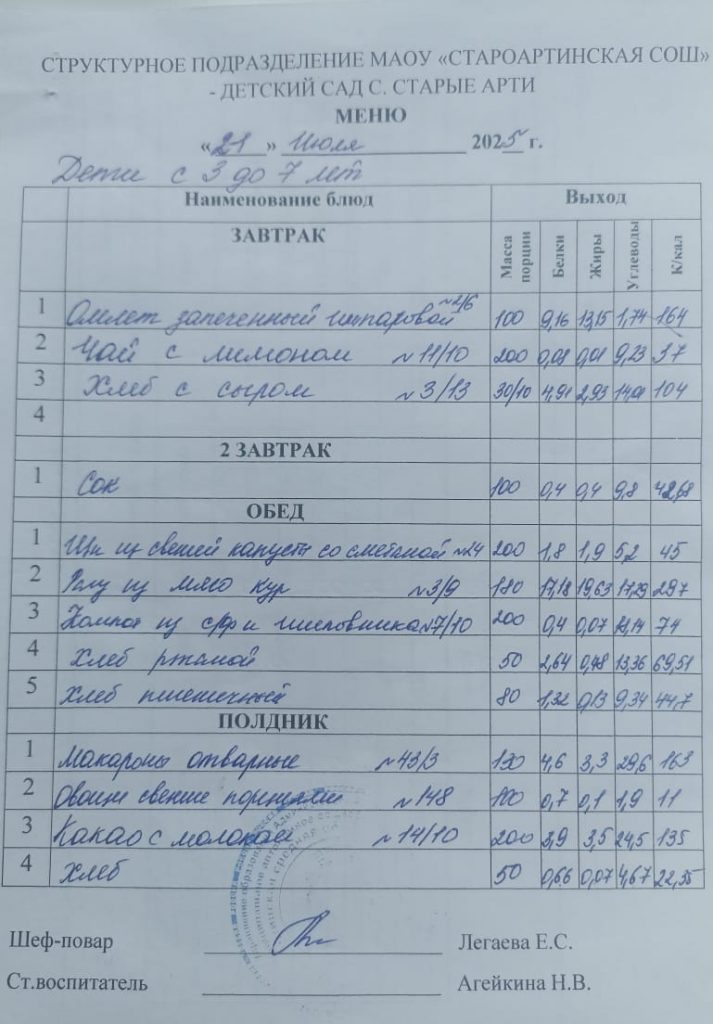 СТРУКТУРНОЕ ПОДРАЗДЕЛЕНИЕ МАОУ «СТАРОАРТИНСКАЯ СОШ»
- ДЕТСКИЙ САД С. СТАРЫЕ АРТИ
МЕНЮ
«21» Июля 2025 г.
Дети с 3 до 7 лет
Наименование блюд Выход
ЗАВТРАК Масса порции Белки Жиры Углеводы К/кал
1 Омлет запеченный 100 9,16 13,15 1,74 164
2 Чай с лимоном ~ 11/10 200 9,23 37
3 Хлеб с сыром ~ 3/13 30/10 4,91 2,93 104
4
2 ЗАВТРАК
1 Сок 100 0,4 0,4 9,8 42,68
ОБЕД
1 Щи из свежей капусты со сметаной ~24 200 1,8 1,9 5,2 45
2 из мяса кур ~3/9 180 17,18 19,63 17,29 297
3 Компот из с/фр и шиповника ~7/10 200 0,4 0,07 74
4 Хлеб ржаной 50 2,64 0,48 13,36 69,51
5 Хлеб пшеничный 80 1,32 0,13 9,34 44,7
ПОЛДНИК
1 Макароны отварные ~ 43/3 4,6 3,3 29,6 163
2 Овощи свежие ~ 148 100 0,7 0,1 1,9 11
3 Какао с молоком ~ 14/10 200 3,9 3,5 24,5 135
4 Хлеб 50 0,66 0,07 4,67 22,35
Шеф-повар Легаева Е.С.
Ст.воспитатель Агейкина Н.В.